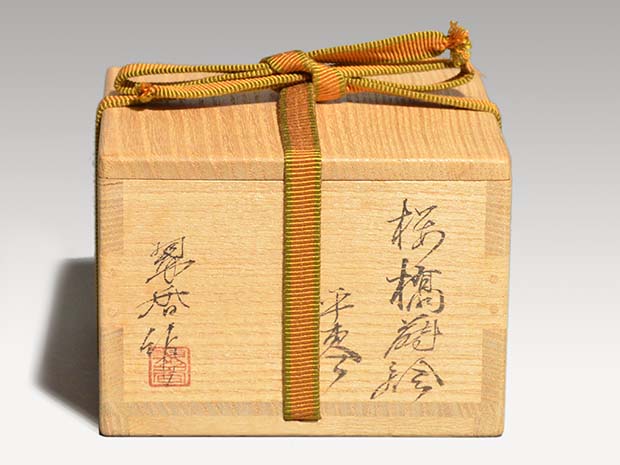 桜橋蒔絵
平棗
翠香作